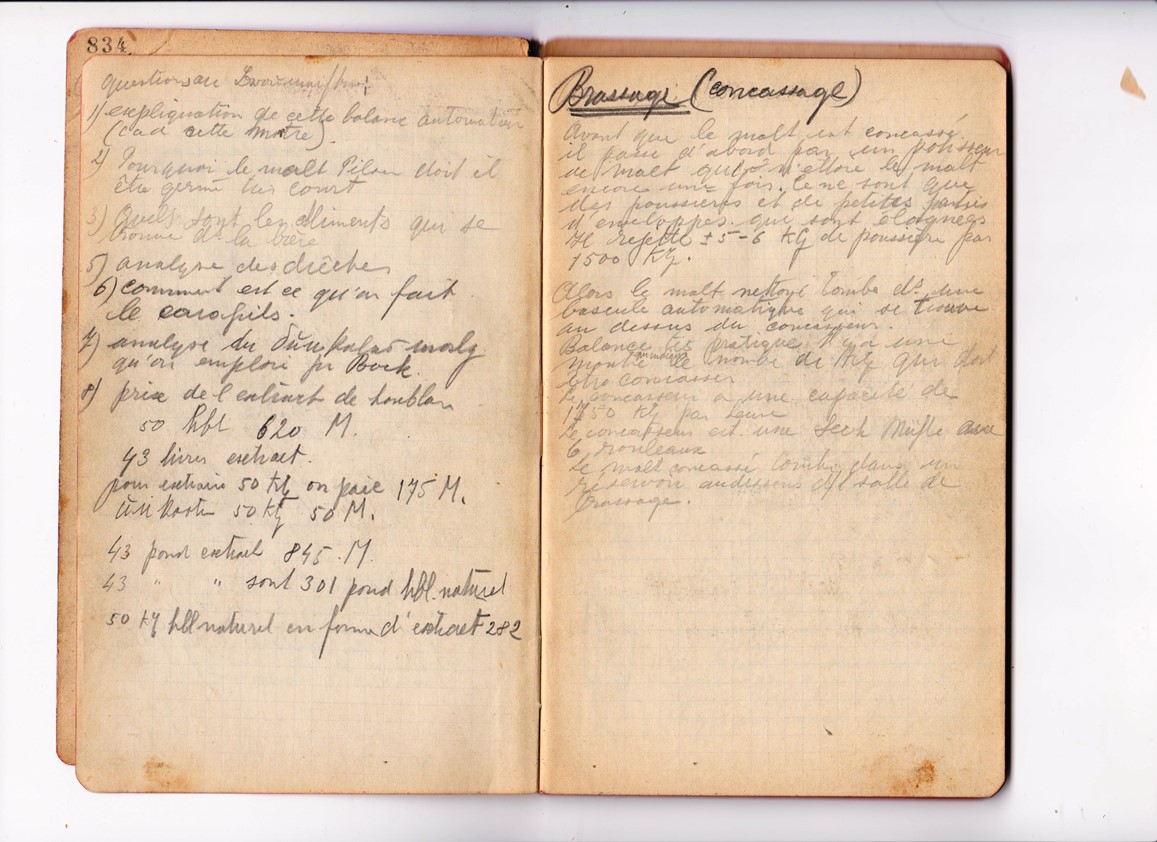 834
questions au
1) expliquation de cette balanc automatique
(cad cette montre).
2) Pourquoi le malt Pilsen doit il
être germé très court
3) quels sont les éliments qui se
trouve ds la bière
5) analyse des drêches
6) comment est ce qu'on fait
le carapils.
7) analyse du
qu'on emploi pr Bock.
8) prix de l'extrait de houblon
50 hbl 620 M.
43 livres extrait.
pour extraire 50 Kg on paie 175 M.
50 Kg 50 M.
43 pond extrait 845. M.
43 " " sont 301 pond hbl. naturel
50 Kg hbl naturel en forme d'extrait 282
Brassage (concassage)
Avant que le malt est concassé
il passe d'abord par un polisseur
de malt qui nettoie le malt
encore une fois. Ce ne sont que
des poussieres et de petites parties
d'enveloppes qui sont éloignées
Il rejette ± 5-6 Kg de poussière par
1500 Kg.
Alors le malt nettoyé tombe ds une
bascule automatique qui se trouve
au dessus du concasseur.
Balance très pratique. Il y a une
montre le nombre de Kg qui doit
être concasser.
Le concasseur a une capacité de
1750 Kg par heure
Le concasseur est une Seck Mühle avec
6 rouleaux
Le malt concassé tombe dans un
réservoir au dessus de salle de
brassage.